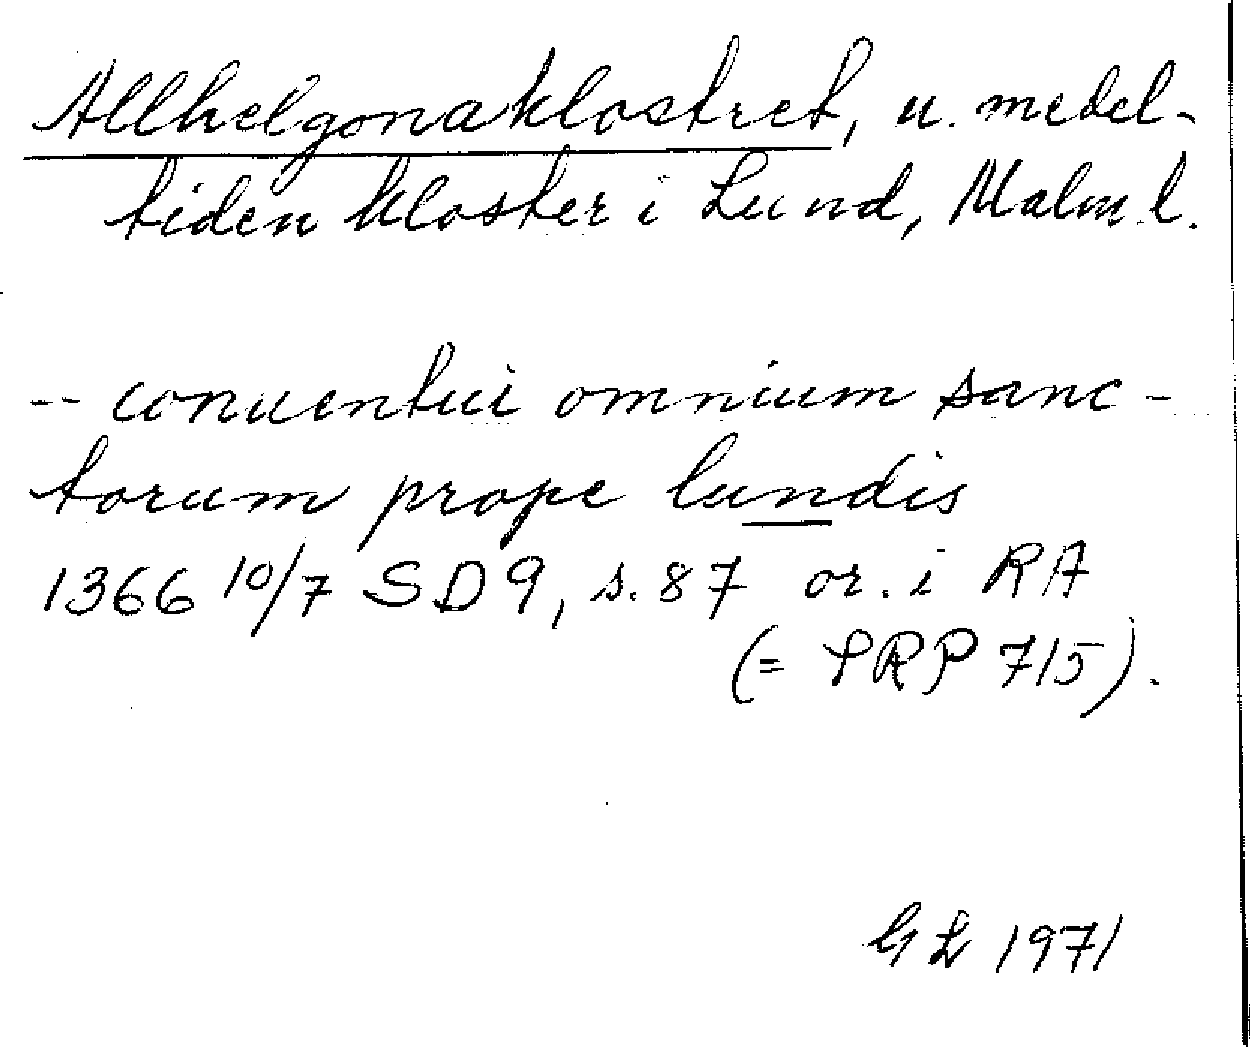 Allhelgonaklostret, u. medel-
tiden kloster i Lund, Malm. l.
-- conuentui omnium sanc-
torum prope lundis
1366 10/7 SD 9, s. 87 or. i RA
(= SRP 715).
GL 1971